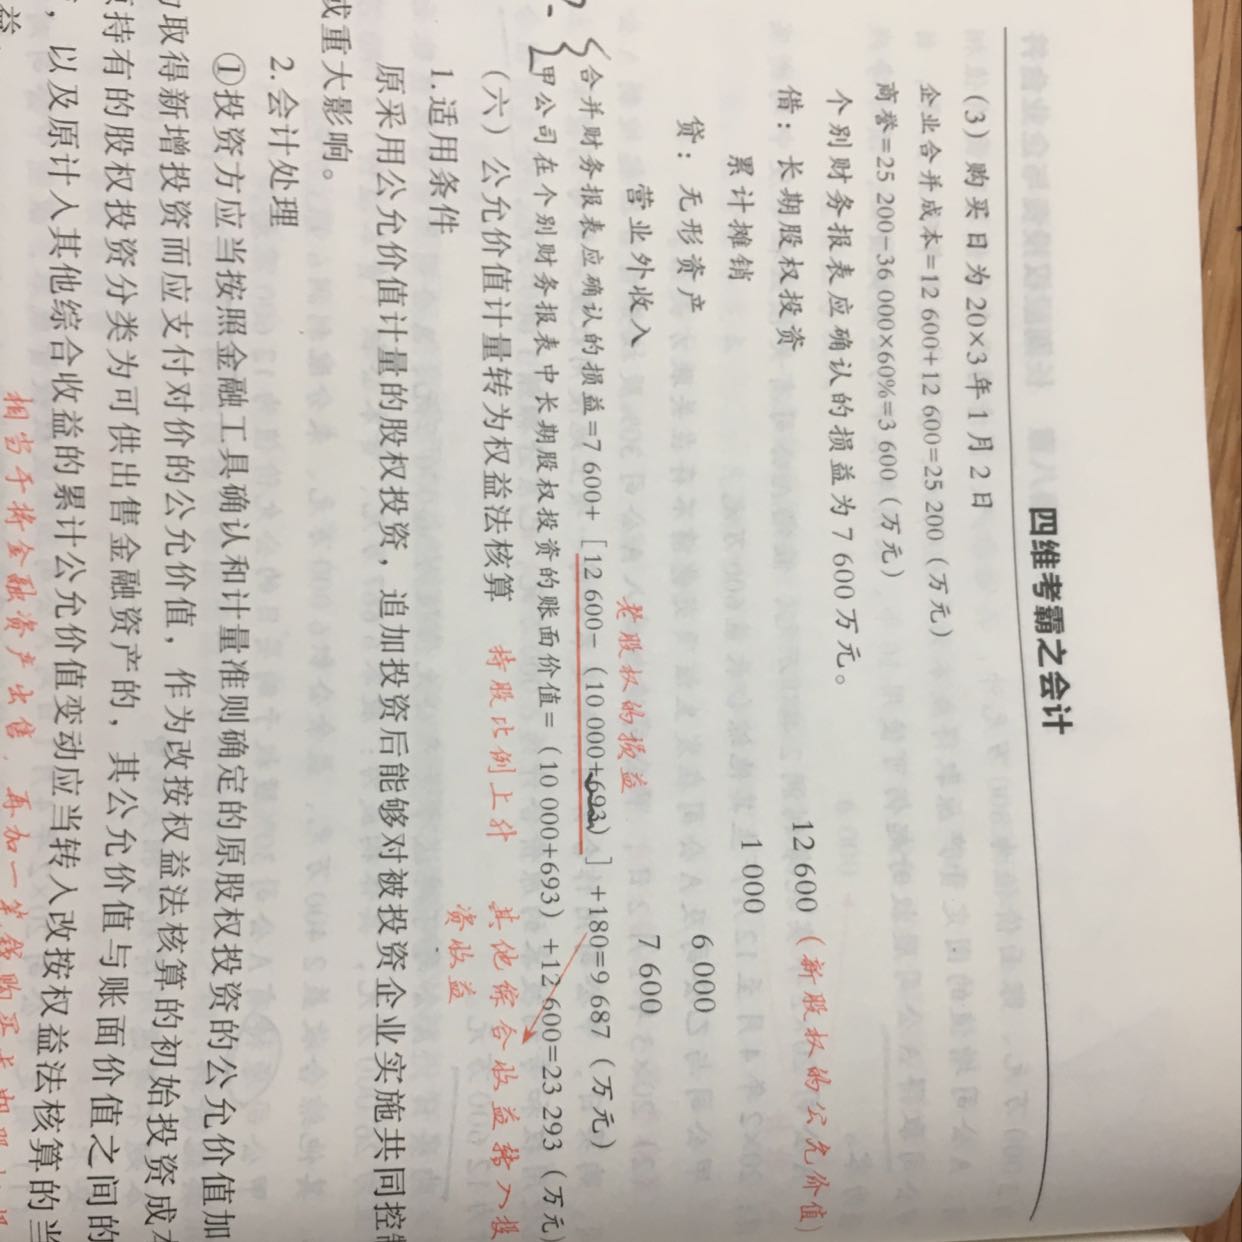 四维考霸之会计
(3)购买日为20×3年1月2日
企业合并成本=12 600+12 600=25 200(万元)
商誉=25 200-36 000×60%=3 600(万元)
个别财务报表应确认的损益为7 600万元。
借：长期股权投资 12 600(新股权的公允价值)
累计摊销 1 000
贷：无形资产 6 000
营业外收入 7 600
老股权的损益
合并财务报表应确认的损益=7 600+[12 600-(10 000+693)]+180=9 687(万元)
甲公司在个别财务报表中长期股权投资的账面价值=(10 000+693)+12 600=23 293(万元)
(六)公允价值计量转为权益法核算 持股比例上升 其他综合收益转入投
资收益
1.适用条件
原采用公允价值计量的股权投资，追加投资后能够对被投资企业实施共同控制
或重大影响。
2.会计处理
①投资方应当按照金融工具确认和计量准则确定的原股权投资的公允价值加
取得新增投资而应支付对价的公允价值，作为改按权益法核算的初始投资成本
持有的股权投资分类为可供出售金融资产的，其公允价值与账面价值之间的
，以及原计入其他综合收益的累计公允价值变动应当转入改按权益法核算的当
益
相当于将金融资产出售，再加一笔钱购买长期